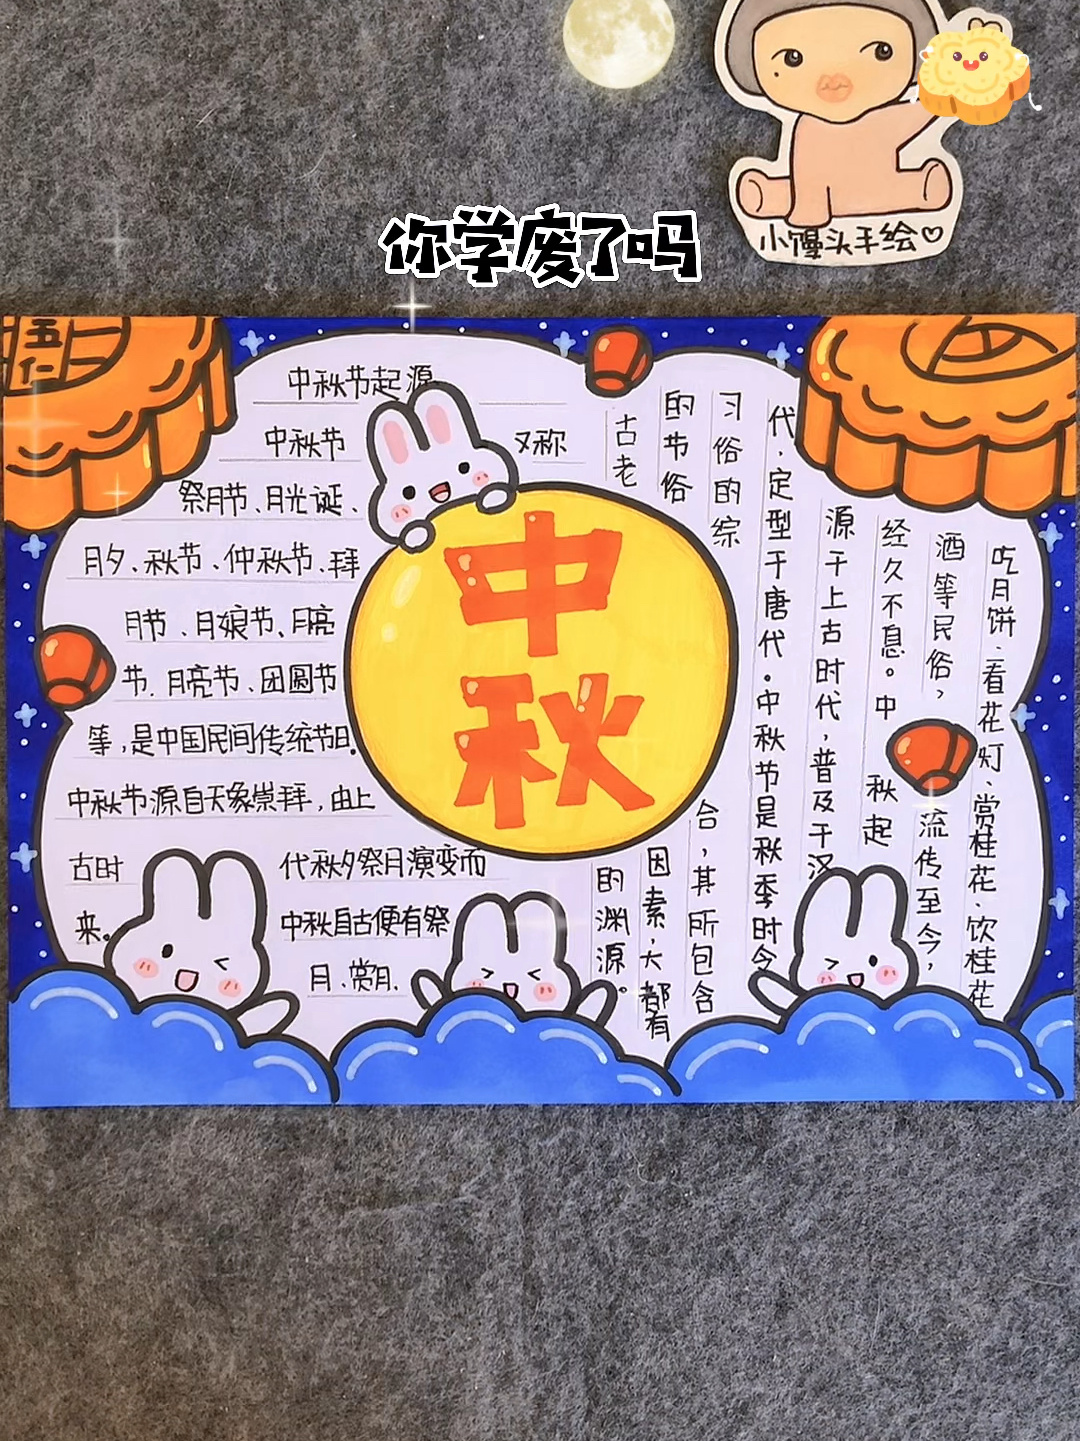 小馒头手绘
你学废了吗
五
仁
中秋节起源
中秋节 又称
祭月节、月光诞、
月夕、秋节、仲秋节、拜
月节、月娘节、月亮
节、月亮节、团圆节
等,是中国民间传统节日。
中秋节源自天象崇拜,由上
古时 代秋夕祭月演变而
来。 中秋自古便有祭
月、赏月、
中
秋
吃月饼、看花灯、赏桂花、饮桂花
酒等民俗, 流传至今,
经久不息。中 秋起
源于上古时代,普及于汉
代,定型于唐代。中秋节是秋季时令
习俗的综 合,其所包含
的节俗 因素,大都有
古老 的渊源。